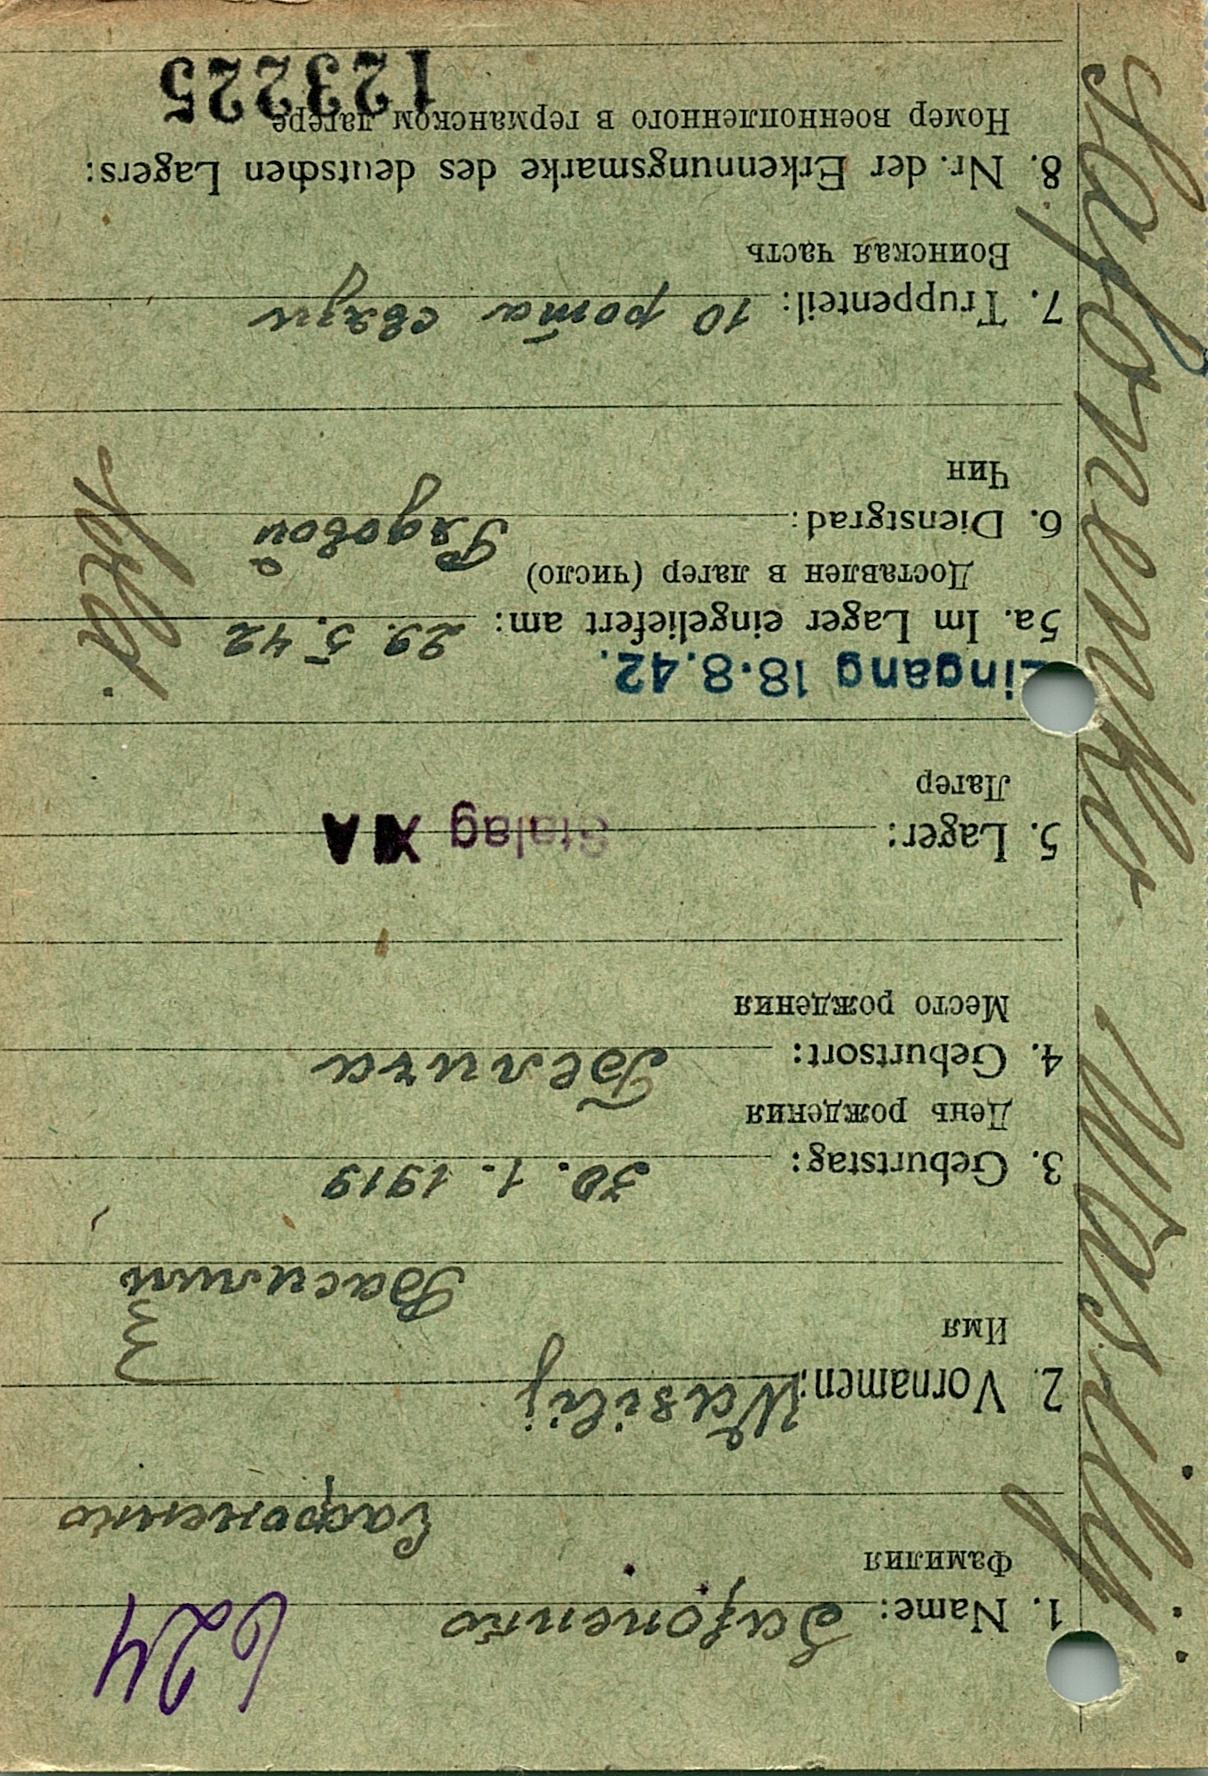 624
1. Name: Safonenko
Фамилия
Сафоненко
2. Vornamen: Wasilij
Имя
Василий
3. Geburtstag: 30. 1. 1919
День рождения
4. Geburtsort:
Место рождения
5. Lager: Stalag XA
Лагер
Eingang 18.8.42.
5a. Im Lager eingeliefert am: 29. 5. 42
Доставлен в лагер (число)
6. Dienstgrad: Рядовой
Чин
7. Truppenteil: 10 рота связи
Воинская часть
8. Nr. der Erkennungsmarke des deutschen Lagers:
Номер военнопленного в германском лагере
123225
Safonenko Wasilij